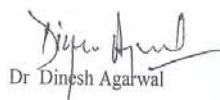 Dr Dinesh Agarwal